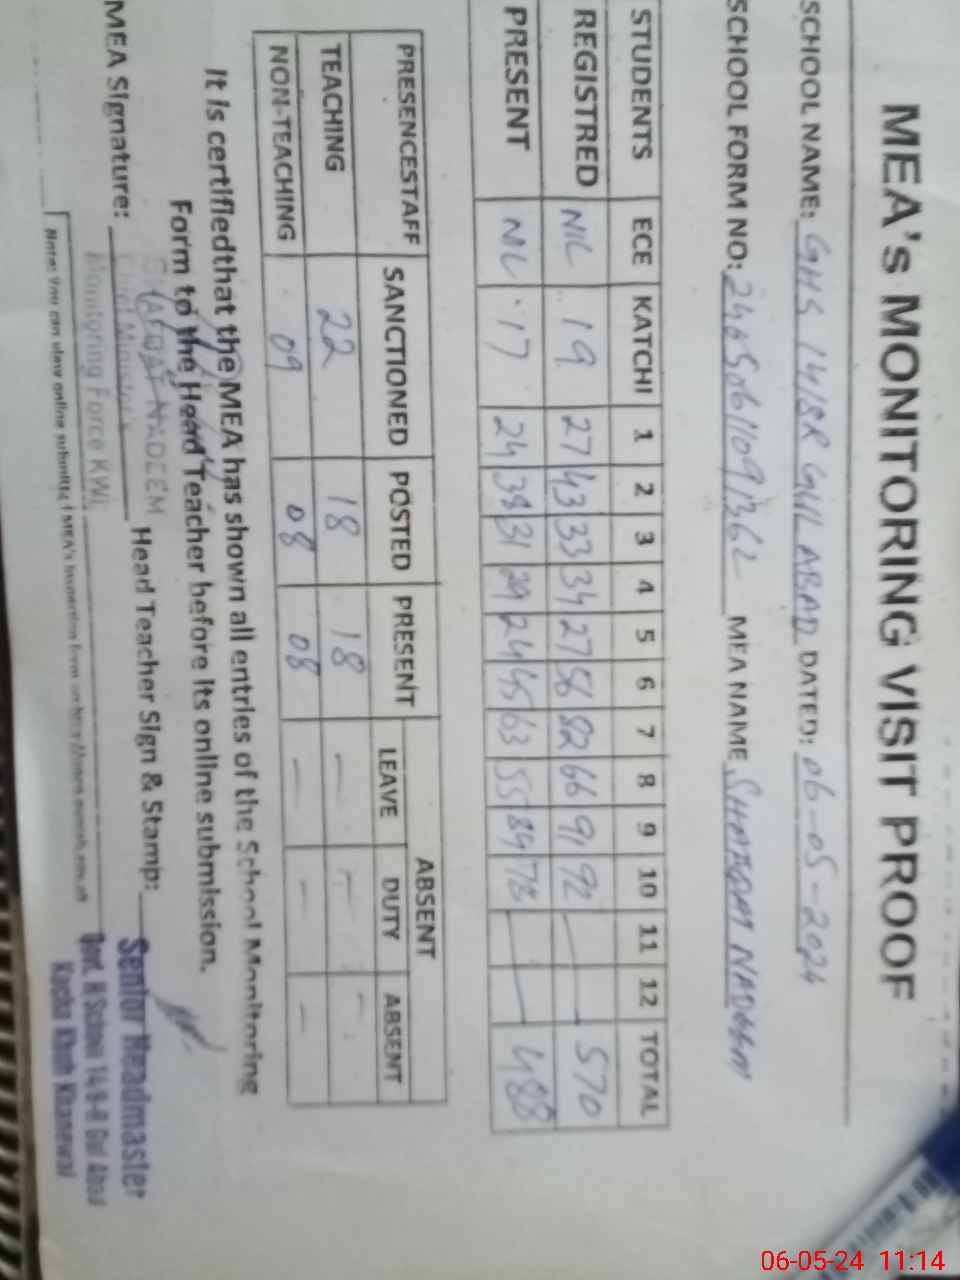 MEA's MONITORING VISIT PROOF
SCHOOL NAME: GHS 14/8R GUL ABAD DATED: 06-05-2024
SCHOOL FORM NO: MEA NAME NADEEM
STUDENTS ECE KATCHI 1 2 3 4 5 6 7 8 9 10 11 12 TOTAL
REGISTRED NIL 19 27 43 33 34 27 56 82 66 91 92 — 570
PRESENT NIL 17 24 38 31 29 24 45 63 55 84 78 — 488
PRESENCESTAFF SANCTIONED POSTED PRESENT ABSENT
LEAVE DUTY ABSENT
TEACHING 22 18 18 — — —
NON-TEACHING 09 08 08 — — —
It is certifiedthat the MEA has shown all entries of the School Monitoring
Form to the Head Teacher before its online submission.
MEA Signature: Head Teacher Sign & Stamp:
NADEEM
Chief Minister's
Monitoring Force KWL
Senior Headmaster
Govt. H School 14-8-R Gul Abad
Kacha Khuh Khanewal
Note: You can view online submitted MEA's Inspection form on
06-05-24 11:14